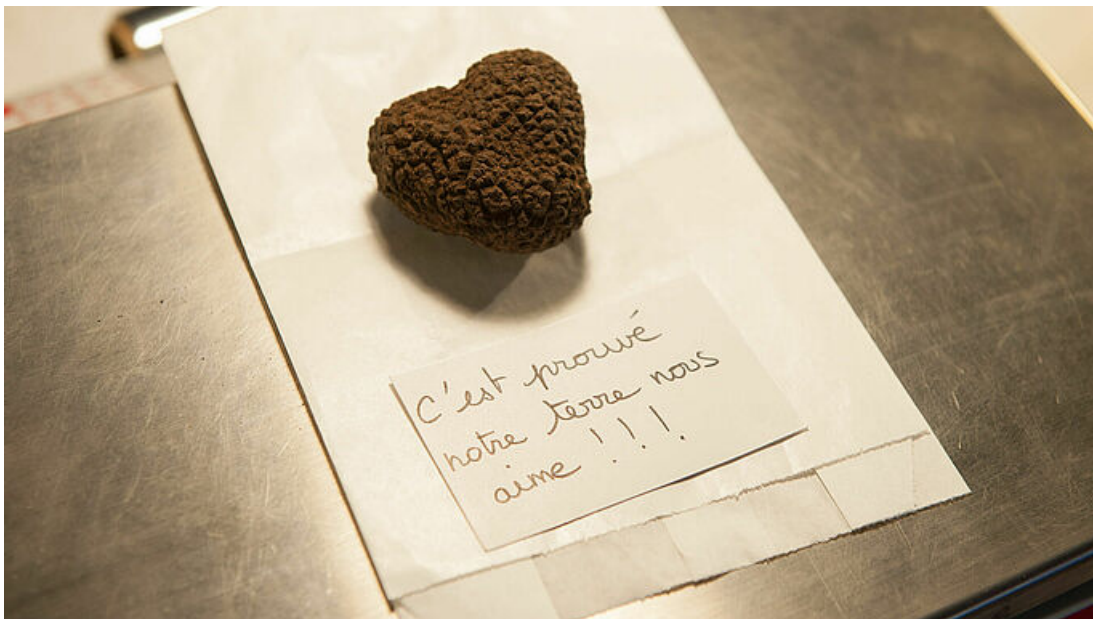 C'est prouvé
notre terre nous
aime !!!